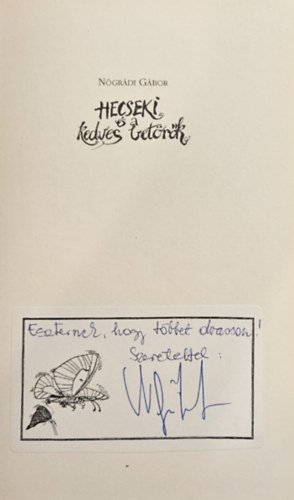 NÓGRÁDI GÁBOR
HECSEKI
és a
kedves betörők
Eszternek, hogy többet olvasson!
Szeretettel: